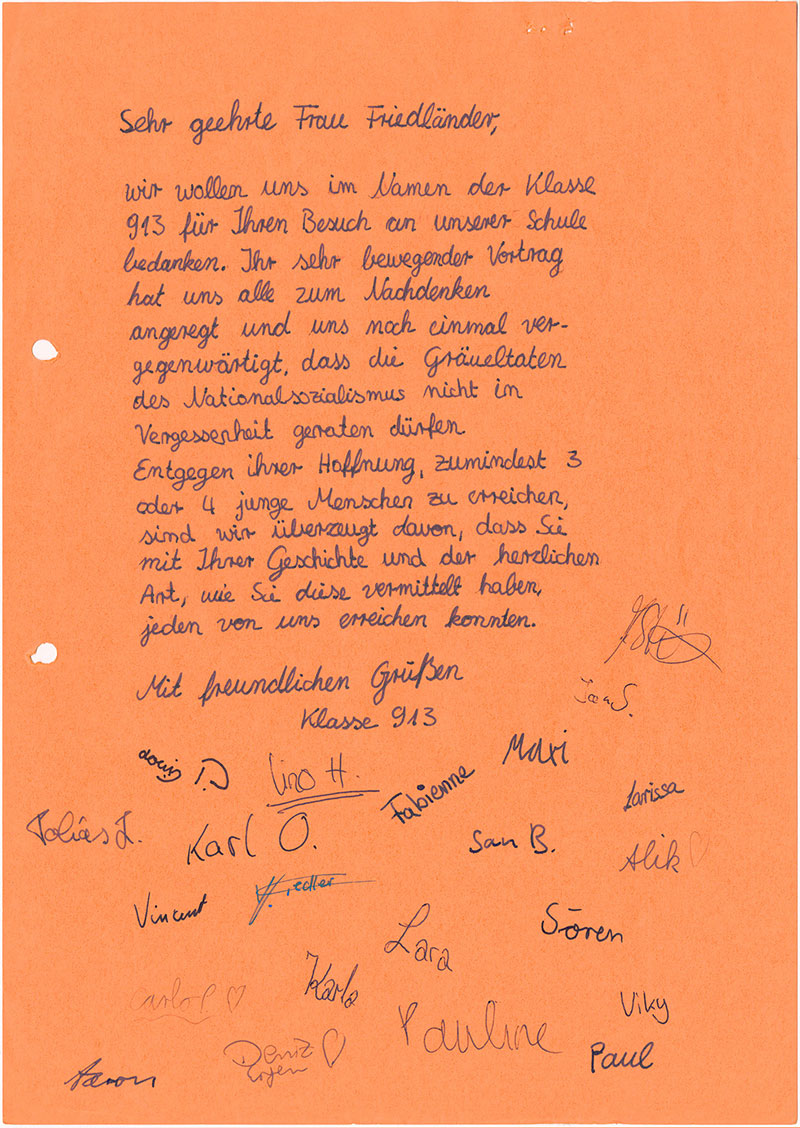 Sehr geehrte Frau Friedländer,
wir wollen uns im Namen der Klasse
913 für Ihren Besuch an unserer Schule
bedanken. Ihr sehr bewegender Vortrag
hat uns alle zum Nachdenken
angeregt und uns noch einmal ver-
gegenwärtigt, dass die Gräueltaten
des Nationalsozialismus nicht in
Vergessenheit geraten dürfen
Entgegen ihrer Hoffnung, zumindest 3
oder 4 junge Menschen zu erreichen,
sind wir überzeugt davon, dass Sie
mit Ihrer Geschichte und der herzlichen
Art, wie Sie diese vermittelt haben,
jeden von uns erreichen konnten.
Mit freundlichen Grüßen
Klasse 913
Maxi
Lino H.
Fabienne
Larissa
Tobias L.
Karl O.
San B.
Alik
Vincent
Lara
Sören
Karla
Viky
Pauline
Deniz
Paul
Aaron